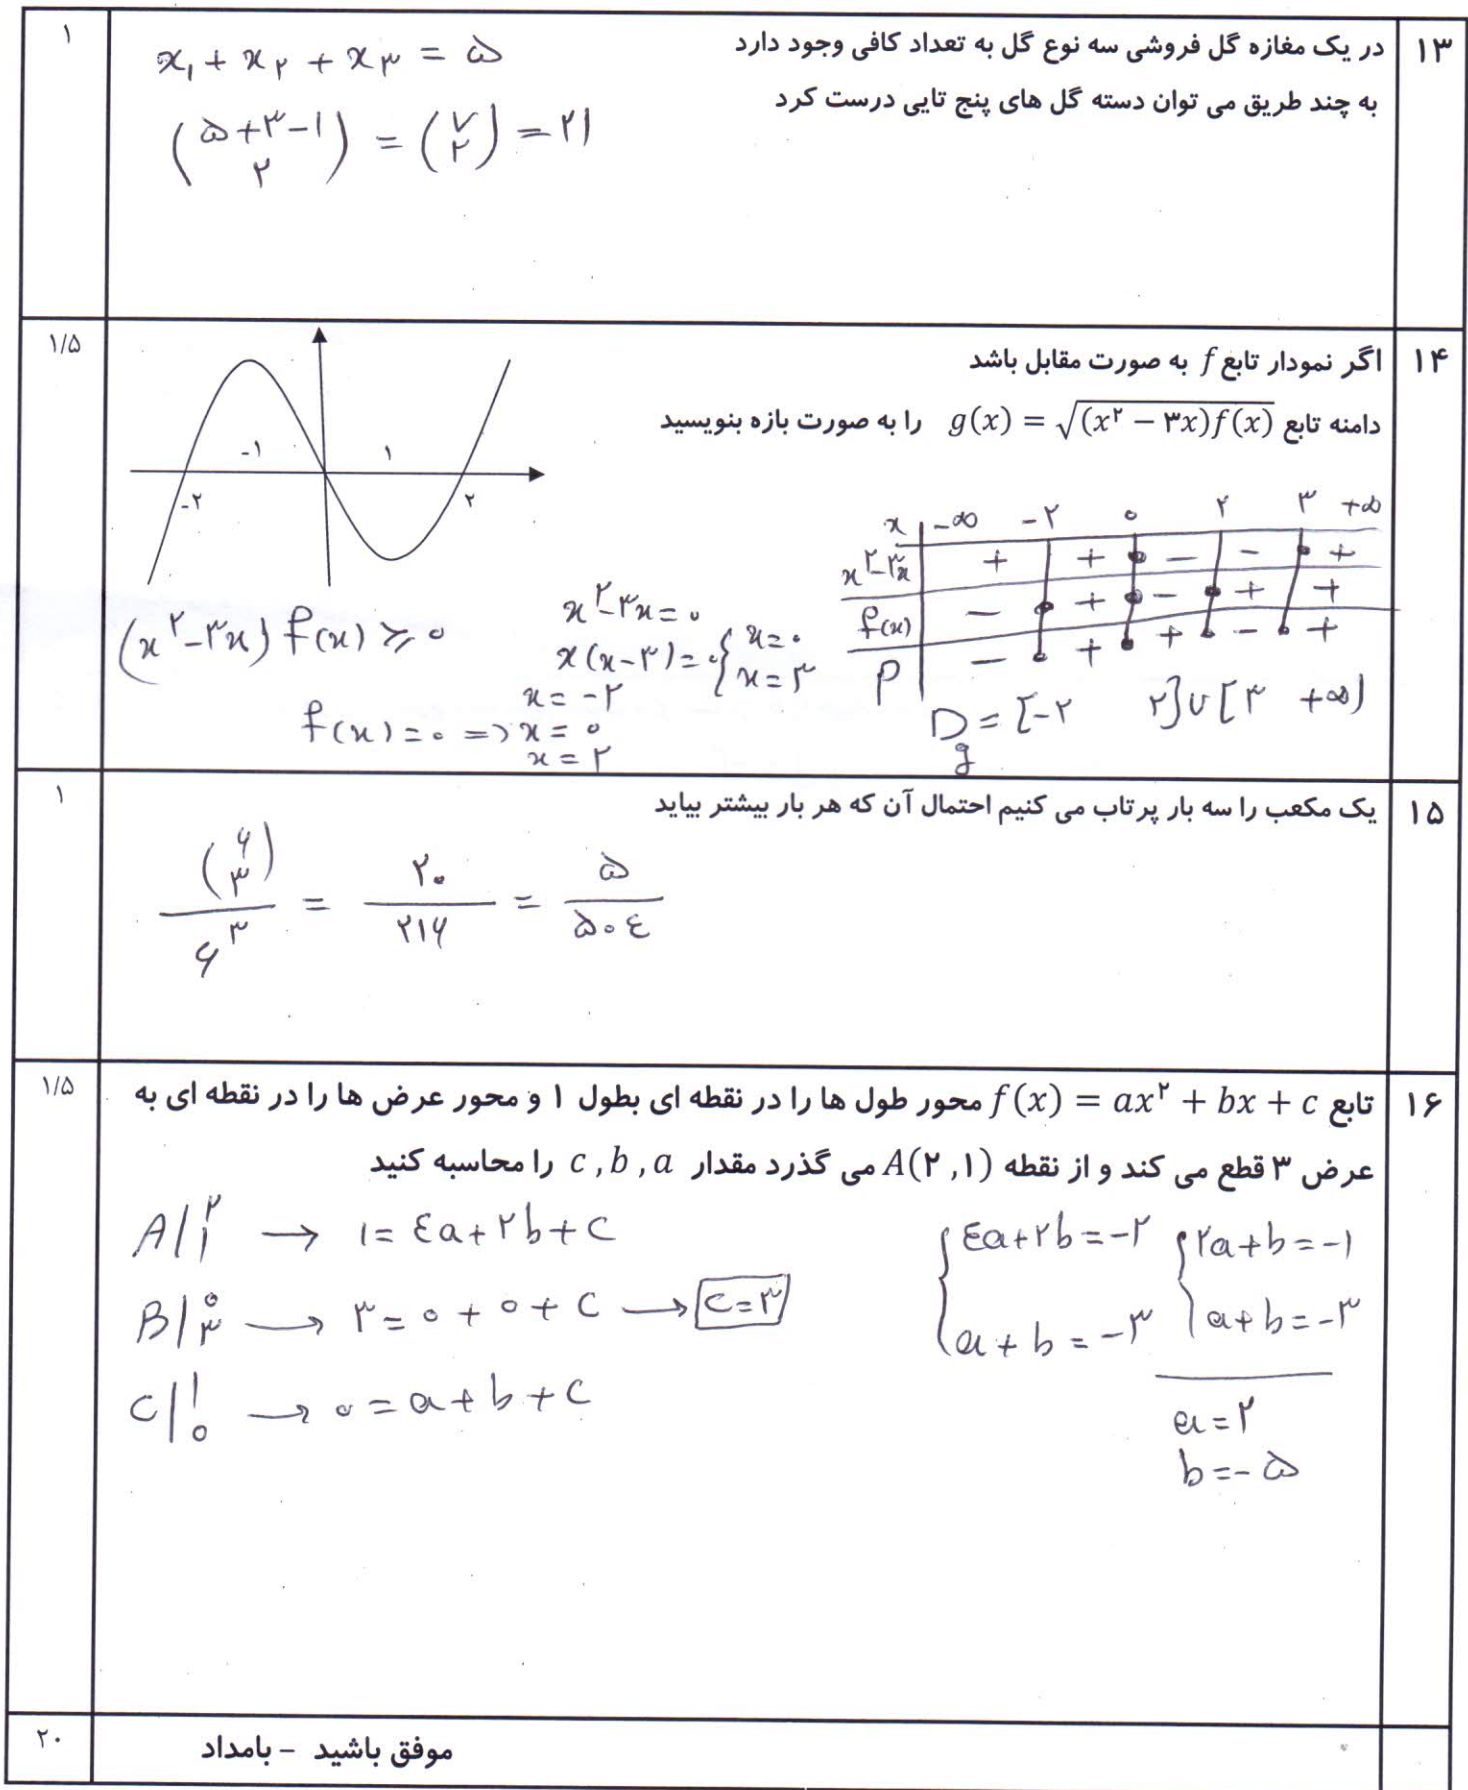 ۱۳
در یک مغازه گل فروشی سه نوع گل به تعداد کافی وجود دارد
به چند طریق می توان دسته گل های پنج تایی درست کرد
۱
x₁ + x₂ + x₃ = ۵
(۵+۳-۱ / ۲) = (۷ / ۲) = ۲۱
۱۴
اگر نمودار تابع f به صورت مقابل باشد
دامنه تابع g(x) = √((x² − ۳x)f(x)) را به صورت بازه بنویسید
۱/۵
-۲ -۱ ۱ ۲
x -∞ -۲ ۰ ۲ ۳ +∞
x²-۳x + + - - +
f(x) - + - + +
P - + + - +
D_g = [-۲ ۲] ∪ [۳ +∞)
(x²-۳x) f(x) ≥ ۰
x²-۳x = ۰
x(x-۳) = ۰ { x = ۰
x = ۳
f(x) = ۰ => x = -۲
x = ۰
x = ۲
۱۵
یک مکعب را سه بار پرتاب می کنیم احتمال آن که هر بار بیشتر بیاید
۱
(۶ / ۳) / ۶³ = ۲۰ / ۲۱۶ = ۵ / ۵۰۴
۱۶
تابع f(x) = ax² + bx + c محور طول ها را در نقطه ای بطول ۱ و محور عرض ها را در نقطه ای به
عرض ۳ قطع می کند و از نقطه A(۲,۱) می گذرد مقدار c , b , a را محاسبه کنید
۱/۵
A|۲ ۱ → ۱ = ۴a + ۲b + c
B|۰ ۳ → ۳ = ۰ + ۰ + c → c = ۳
C|۱ ۰ → ۰ = a + b + c
{ ۴a + ۲b = -۲
a + b = -۳
{ ۲a + b = -۱
a + b = -۳
a = ۲
b = -۵
موفق باشید – بامداد
۲۰